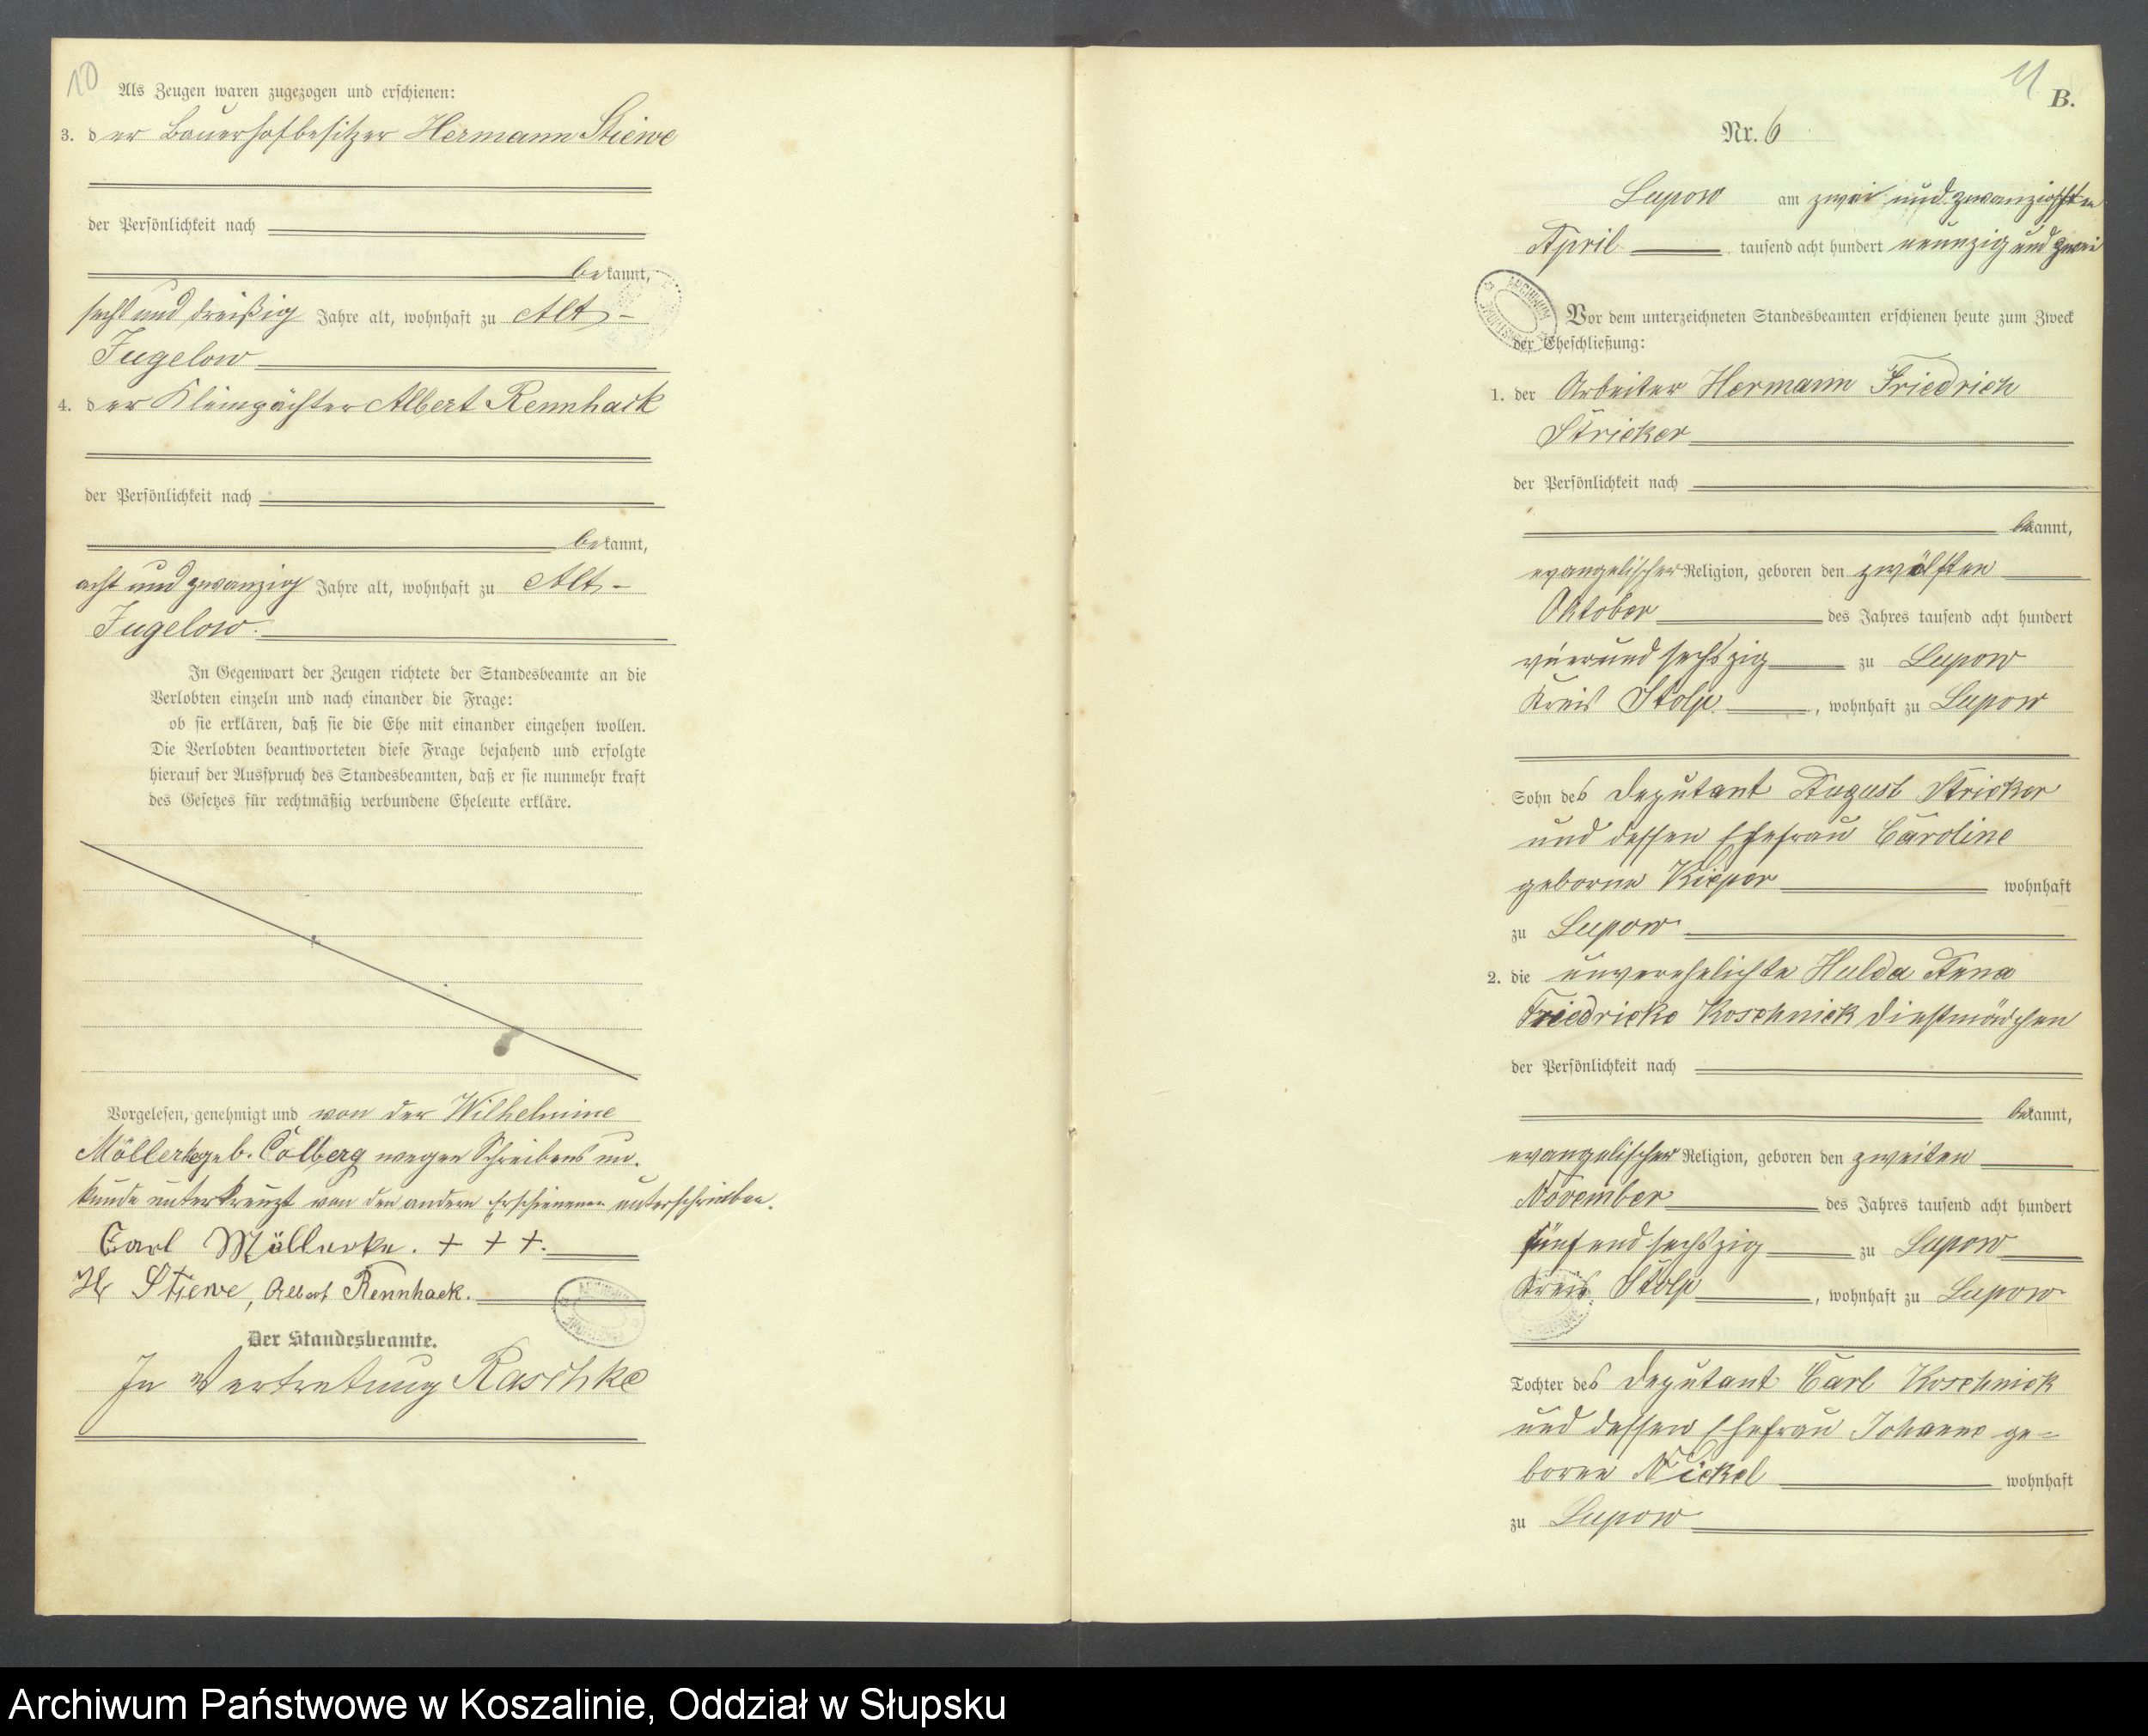 10
Als Zeugen waren zugezogen und erschienen:
3. der Bauerhofbesitzer Hermann Stiewe
der Persönlichkeit nach
bekannt,
sechs und dreißig Jahre alt, wohnhaft zu Alt-
Jugelow
4. der Kleinpächter Albert Rennhack
der Persönlichkeit nach
bekannt,
acht und zwanzig Jahre alt, wohnhaft zu Alt-
Jugelow.
In Gegenwart der Zeugen richtete der Standesbeamte an die
Verlobten einzeln und nach einander die Frage:
ob sie erklären, daß sie die Ehe mit einander eingehen wollen.
Die Verlobten beantworteten diese Frage bejahend und erfolgte
hierauf der Ausspruch des Standesbeamten, daß er sie nunmehr kraft
des Gesetzes für rechtmäßig verbundene Eheleute erkläre.
Vorgelesen, genehmigt und von der Wilhelmine
Möllerke geb. Colberg wegen Schreibens un-
kunde unterkreuzt von den andern Erschienenen unterschrieben.
Carl Möllerke. + + +.
H Stiewe, Albert Rennhack.
Der Standesbeamte.
In Vertretung Raschke
11
B.
Nr. 6
Lupow am zwei und zwanzigsten
April tausend acht hundert neunzig und zwei
Vor dem unterzeichneten Standesbeamten erschienen heute zum Zweck
der Eheschließung:
1. der Arbeiter Hermann Friedrich
Stricker
der Persönlichkeit nach
bekannt,
evangelischer Religion, geboren den zwölften
Oktober des Jahres tausend acht hundert
vier und sechszig zu Lupow
Kreis Stolp, wohnhaft zu Lupow
Sohn des Deputant August Stricker
und dessen Ehefrau Caroline
geborne Kieper wohnhaft
zu Lupow
2. die unverehelichte Hulda Anna
Friedricke Koschnick Dinstmädchen
der Persönlichkeit nach
bekannt,
evangelischer Religion, geboren den zweiten
November des Jahres tausend acht hundert
fünf und sechszig zu Lupow
Kreis Stolp, wohnhaft zu Lupow
Tochter des Deputant Carl Koschnick
und dessen Ehefrau Johanne ge-
borne Nickel wohnhaft
zu Lupow
Archiwum Państwowe w Koszalinie, Oddział w Słupsku